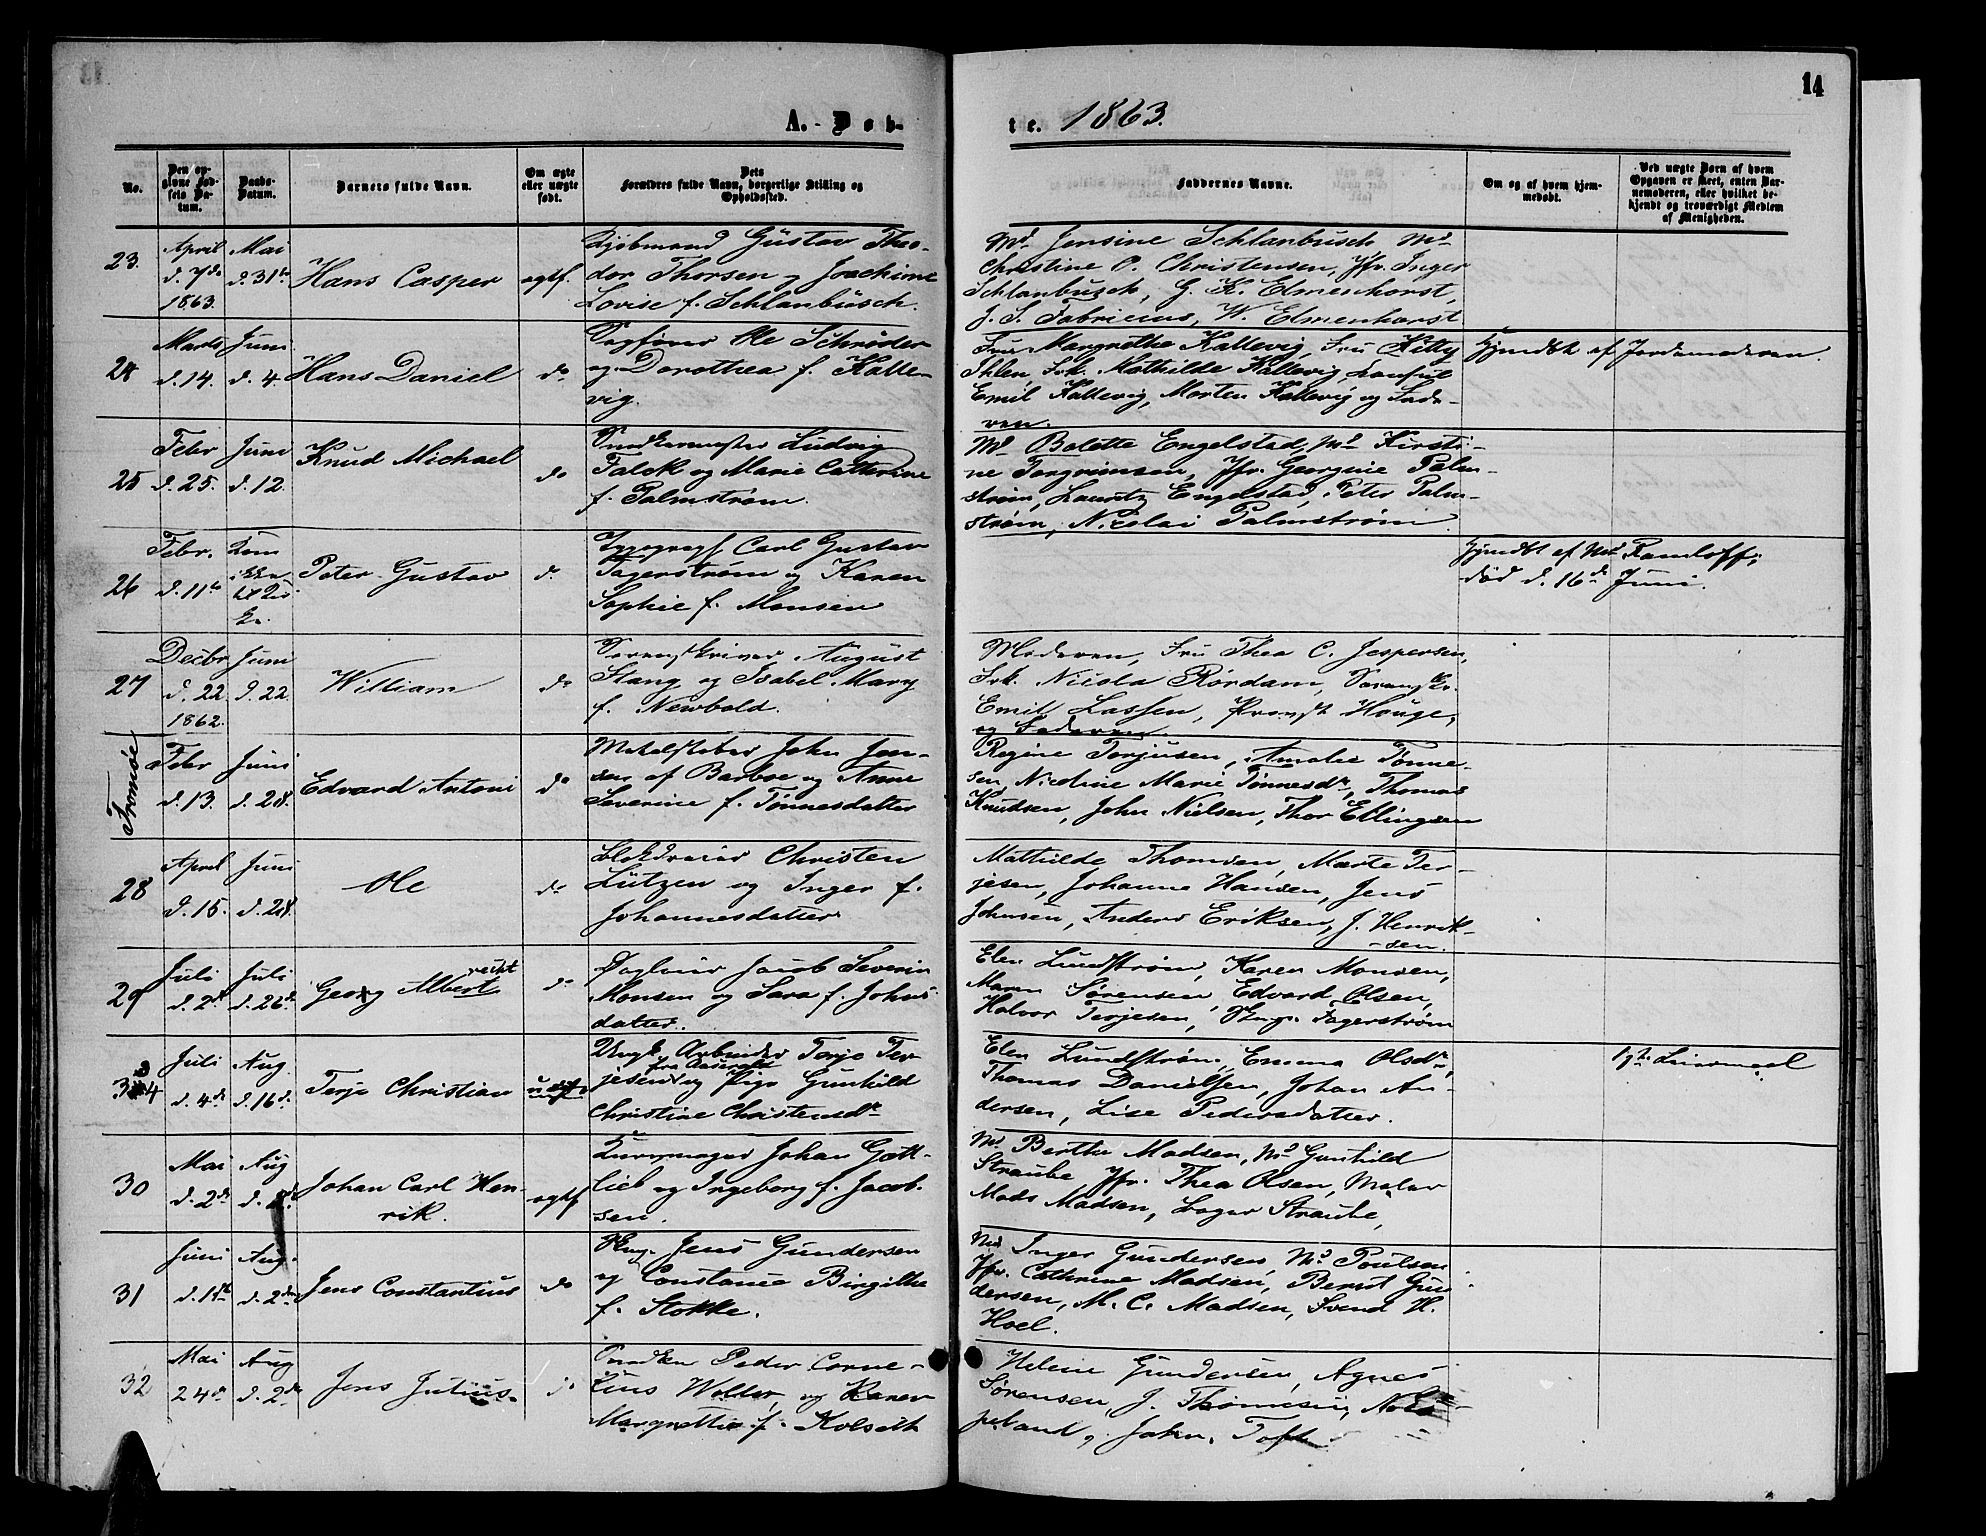 14
A. Døb-
te. 1863.
No.
Den op-
givne Fød-
sels Da-
tum.
Daabs-
Datum.
Barnets fulde Navn.
Om ægte
eller uægte
født.
Dets
Forældres fulde Navn, borgerlige Stilling og
Opholdssted.
Faddernes Navne.
Om og af hvem hjem-
medøbt.
Ved uægte Børn af hvem
Opgaven er skeet, enten Bar-
nemoderen, eller hvilket be-
kjendt og troværdigt Medlem
af Menigheden.
23.
April
d. 7de
1863.
Mai
d. 31te
Hans Casper
ægtf.
Kjøbmand Gustav Theo-
dor Thorsen og Joachime
Lovise f. Schlanbusch.
Md. Jensine Schlanbusch, Md.
Christine P. Christensen, Jfr. Inger
Schlanbusch, G. K. Elmenhorst,
J. S. Fabricius, W. Elmenhorst
24
Marts
d. 14.
Juni
d. 4.
Hans Daniel
do
Sagfører Ole Schrøder
og Dorothea f. Kalle-
vig.
Fru Margrethe Kallevig, Fru Kitty
Ihlen, Frk. Mathilde Kallevig, Consul
Emil Kallevig, Morten Kallevig og Fade-
ren.
Hjemdøbt af Jordemoderen.
25
Febr
d. 25.
Juni
d. 12.
Knud Michael
do
Snedkermester Ludvig
Falck og Marie Cathrine
f. Palmstrøm.
Md. Bolette Engelstad, Md. Kirsti-
ne Torgrimsen, Jfr. Georgine Palm-
strøm, Lauritz Engelstad, Peter Palm-
strøm, Nicolai Palmstrøm.
26
Febr.
d. 11te
Kom
ikke
til Kir-
ke.
Peter Gustav
do
Typograf Carl Gustav
Fagerstrøm og Karen
Sophie f. Monsen
Hjemdbt af Md Ramloff;
død d. 16de Juni.
27
Decbr
d. 22
1862.
Juni
d. 22.
William
do
Sorenskriver August
Stang og Isabel Mary
f. Newbold.
Moderen, Fru Thea C. Jespersen,
Frk. Nicola Rørdam, Sorenskr.
Emil Lassen, Provst Houge,
og Faderen.
Tromøe
Febr
d. 13.
Juni
d. 28.
Edvard Antoni
do
Matelstøber John Jen-
sen af Barboe og Anne
Severine f. Tønnesdatter
Regine Terjusen, Amalie Tønne-
sen, Nicoline Marie Tønnesdr, Thomas
Knudsen, John Nielsen, Thor Ellingsen
28
April
d. 15.
Juni
d. 28.
Ole
do
Blokdreier Christen
Lützen og Inger f.
Johannesdatter
Mathilde Thomsen, Marte Ter-
jesen, Johanne Hansen, Jens
Johnsen, Anders Eriksen, J. Henrik-
-sen.
29
Juli
d. 2de
Juli
d. 26de
Georg Albert
do
Dagleier Jacob Severin
Monsen og Sara f. Johns-
datter.
Elen Lundstrøm, Karen Monsen,
Maren Sørensen, Edvard Olsen,
Halvor Terjesen, Fagerstrøm
34
Juli
d. 4de
Aug.
d. 16de
Terje Christian
Ungk. Arbeider Terje Ter-
jesen og Pige Gunhild
Christine Christensdr
Elen Lundstrøm, Emma Olsdr,
Thomas Danielsen, Johan An-
dersen, Lise Pedersdatter.
30
Mai
d. 2de
Aug
d. 2de
Johan Carl Hen-
rik.
ægtf
Kurvmager Johan Gott-
lieb og Ingeborg f. Jacob-
sen.
Md. Berthe Madsen, Md Gunhild
Straube, Jfr. Thea Olsen, Maler
Mads Madsen, Bager Straube,
31
Juni
Aug.
d. 2de
Jens Constantius
do
Jens Gundersen
og Constance Birgithe
f. Stokke.
Md Inger Gundersen, Md Poulsen
Jfr. Cathrine Madsen, Bernt Gun-
dersen, M. C. Madsen, Svend H.
Hoel.
32
Mai
24de
Aug
d. 2de
Jens Julius.
do
Snedker Peder Corne-
lius Woller, og Karen
Margrethe f. Kolseth
Helene Gundersen, Agnes
Sørensen, J. Thomesen,
John Toft